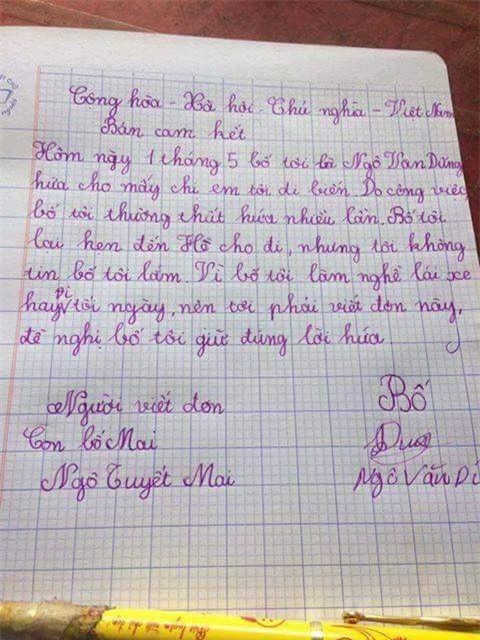 Công hòa - Xã hội - Chủ nghĩa - Việt Nam
Bản cam kết
Hôm ngày 1 tháng 5 bố tôi là Ngô Văn Dũng
hứa cho mấy chị em tôi đi biển. Do công việc
bố tôi thường thất hứa nhiều lần. Bố tôi
lại hẹn đến Hè cho đi, nhưng tôi không
tin bố tôi lắm. Vì bố tôi làm nghề lái xe
hay đi tối ngày, nên tôi phải viết đơn này,
đề nghị bố tôi giữ đúng lời hứa
Người viết đơn
Bố
Con bố Mai
Ngô Tuyết Mai
Ngô Văn Dũ